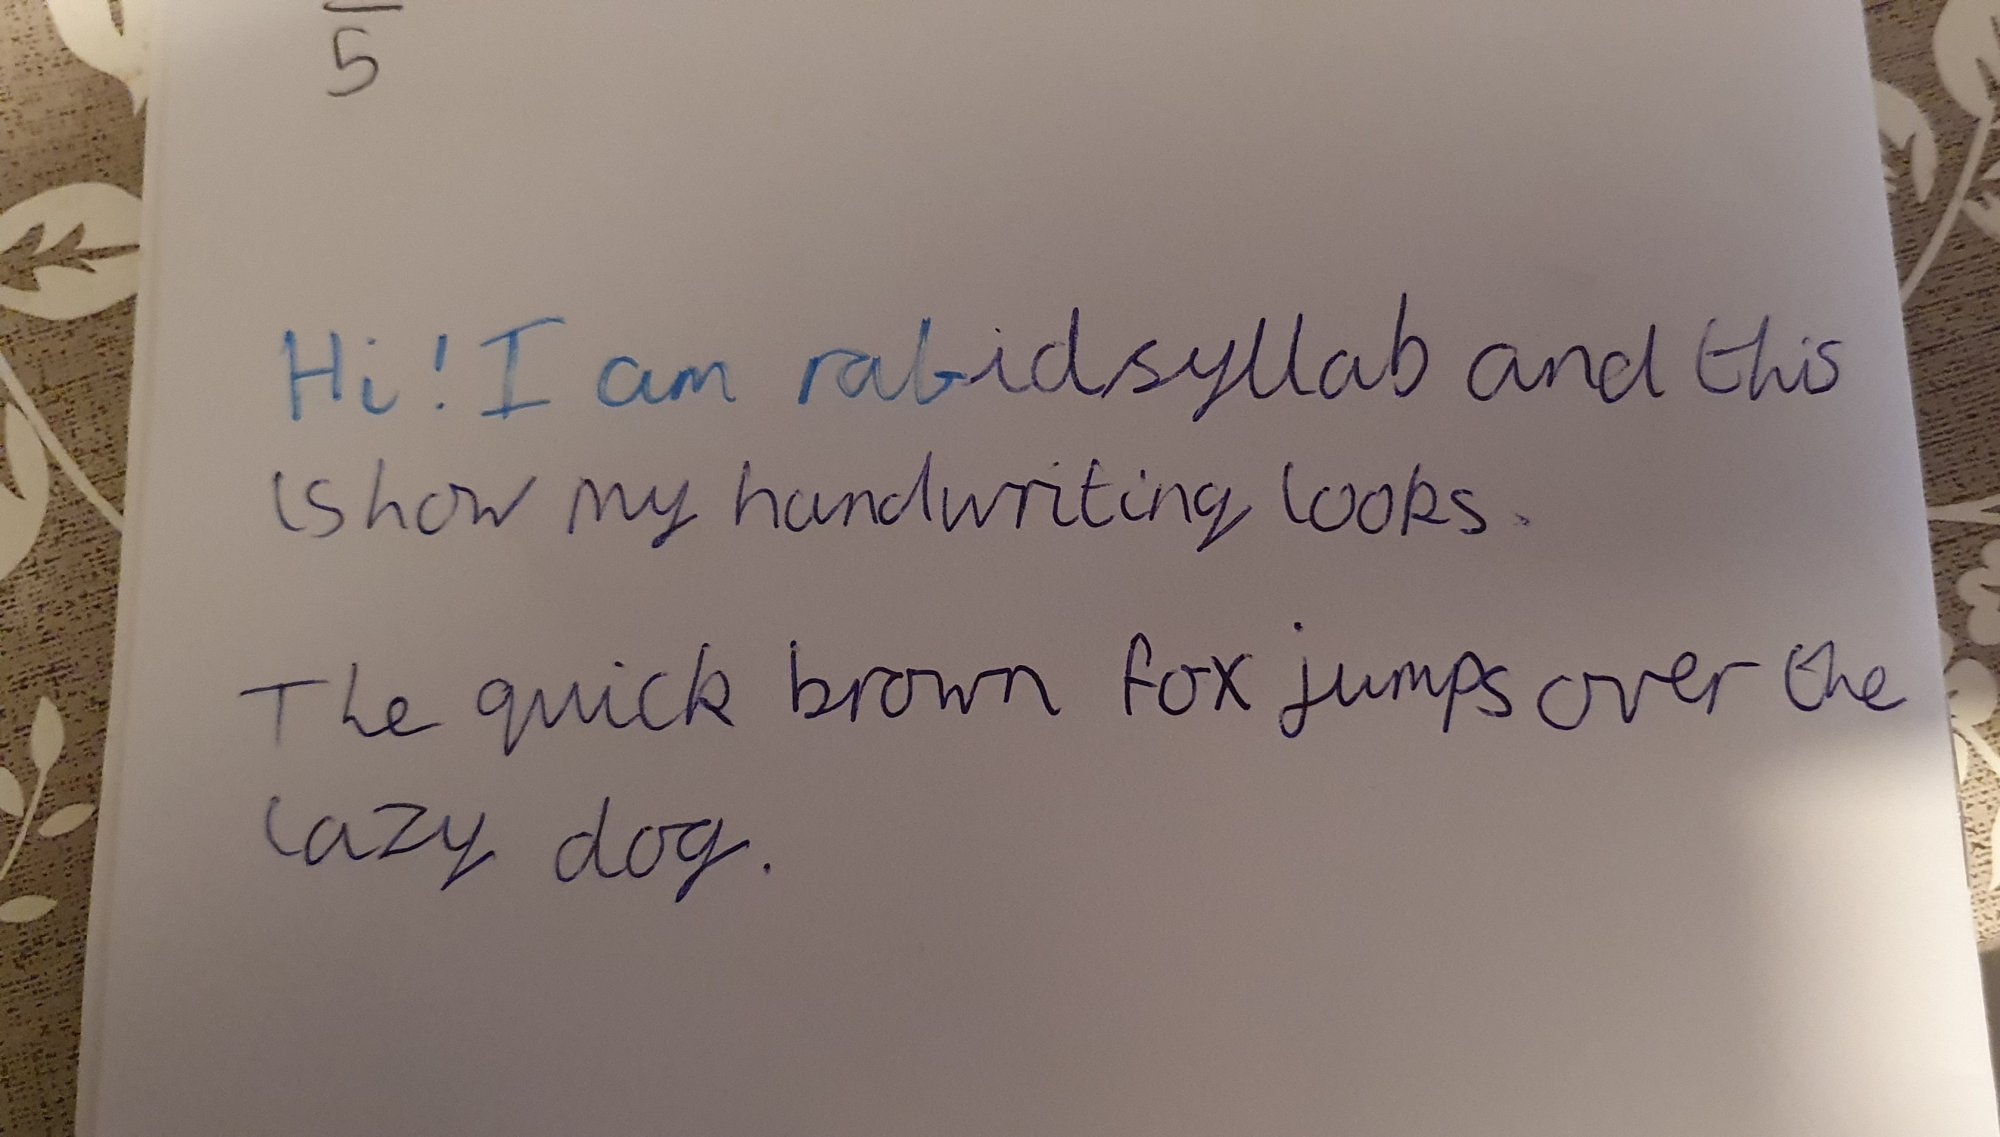 5
Hi! I am rabidsyllab and this
is how my handwriting looks.
The quick brown fox jumps over the
lazy dog.